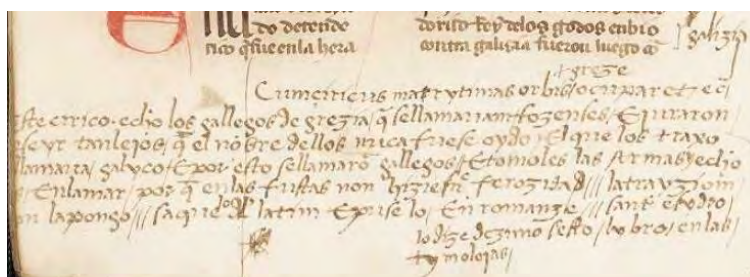 do detende
rico q̃ fue en la hera
dorico Rey delos godos enbio
contra galizia fueron luego cõ
galizia
grege
maritimas orbis / ocuparet ec
este errico. echo los gallegos de grezia, q̃ sellamarian fozenses, E juraron
de seyr tan lejos, q̃ el nõbre dellos nũca fuese oydo / El que los traxo
llamaria, galyco. E por esto sellamarõ gallegos / E tomoles las armas y echo
s, En lamar, por q̃ en las fustas non hiziesẽ ferozidad /// la trauzion
on la pongo /// saque del latim E puse lo, En romanze /// sant esydro,
lo dize dezimo sesto, lybro, en las,
tymolojas,